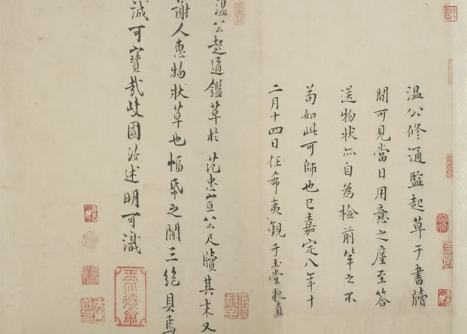 温公修通鑑起草于書牘
間可見當日用意之庄至答
送物狀亦自為檢前輩之不
苟如此可師也已嘉定八年十
二月十四日任希夷觀于玉堂夜直
温公起通鑑草於范忠宣公尺牘其末又
謝人惠物狀草也幅紙之間三絶具焉
誠可寶哉歧國汝述明可識